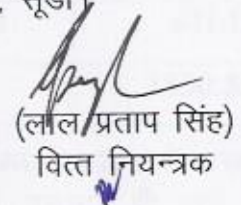 सूडा।
(लाल प्रताप सिंह)
वित्त नियन्त्रक